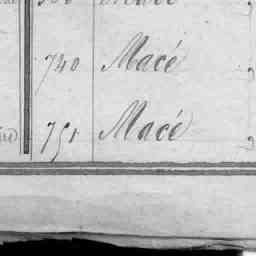 740 Macé
751 Macé